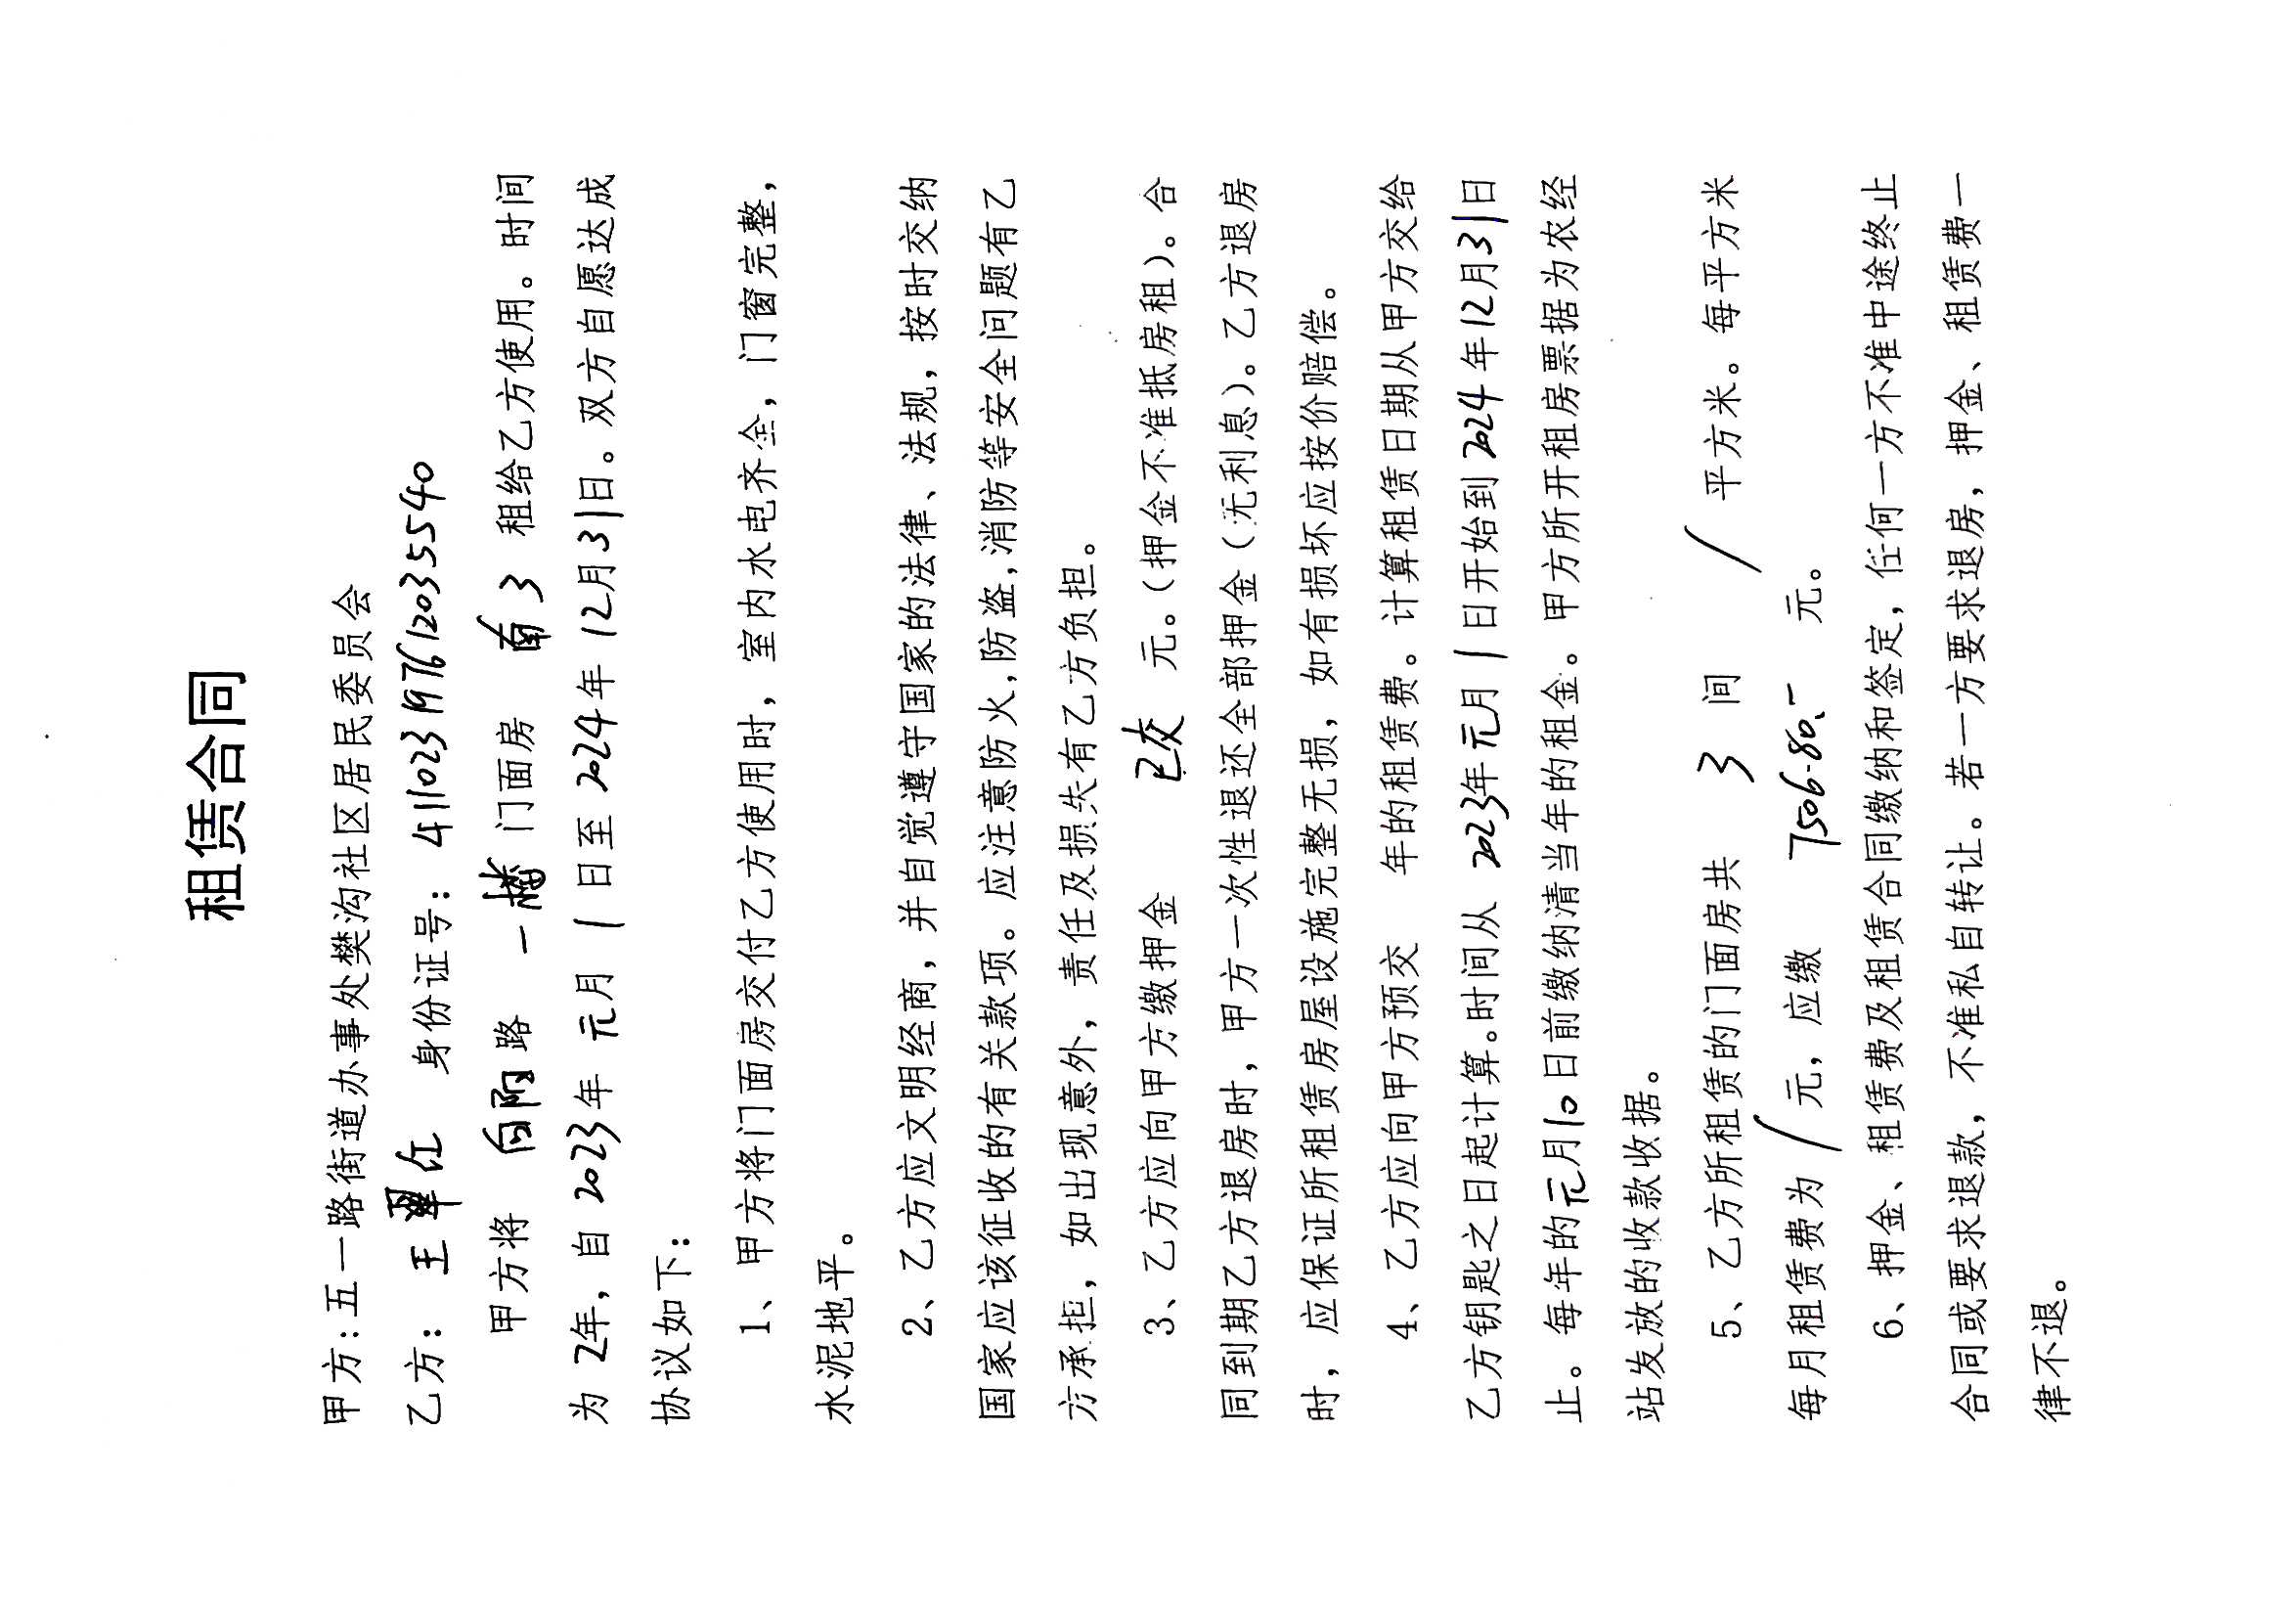 租赁合同
甲方:五一路街道办事处樊沟社区居民委员会
乙方: 王翠红 身份证号: 411023197612035540
甲方将 向阳路 一楼 门面房 南3 租给乙方使用。时间
为2年，自2023年 元月 1日至2024年12月31日。双方自愿达成
协议如下:
1、甲方将门面房交付乙方使用时，室内水电齐全，门窗完整，
水泥地平。
2、乙方应文明经商，并自觉遵守国家的法律、法规，按时交纳
国家应该征收的有关款项。应注意防火,防盗,消防等安全问题有乙
方承担，如出现意外，责任及损失有乙方负担。
3、乙方应向甲方缴押金 已交 元。(押金不准抵房租)。合
同到期乙方退房时，甲方一次性退还全部押金(无利息)。乙方退房
时，应保证所租赁房屋设施完整无损，如有损坏应按价赔偿。
4、乙方应向甲方预交 年的租赁费。计算租赁日期从甲方交给
乙方钥匙之日起计算。时间从2023年元月1日开始到2024年12月31日
止。每年的元月10日前缴纳清当年的租金。甲方所开租房票据为农经
站发放的收款收据。
5、乙方所租赁的门面房共 3 间 / 平方米。每平方米
每月租赁费为 / 元，应缴 7506.80.- 元。
6、押金、租赁费及租赁合同缴纳和签定，任何一方不准中途终止
合同或要求退款，不准私自转让。若一方要求退房，押金、租赁费一
律不退。